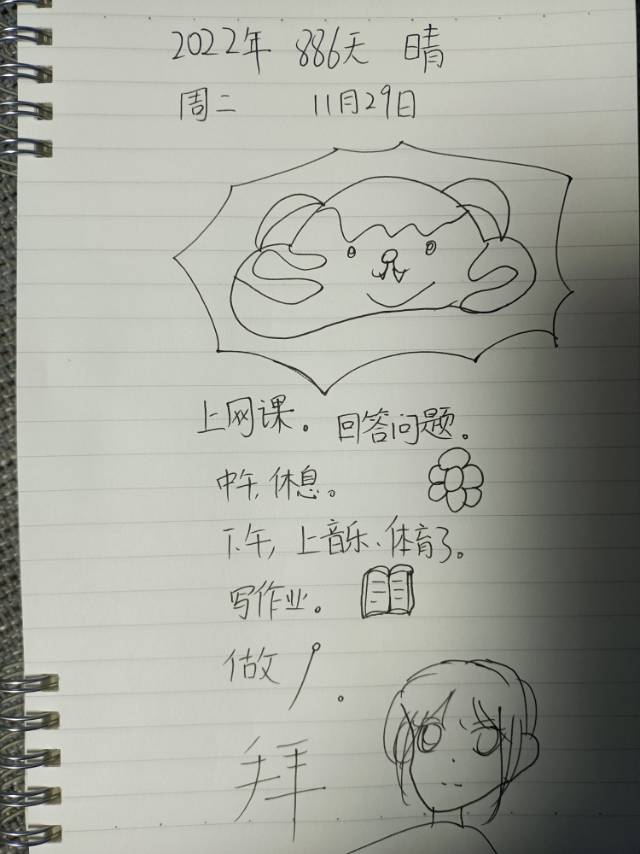 2022年 886天 晴
周二 11月29日
上网课。回答问题。
中午,休息。
下午,上音乐、体育了。
写作业。
做 。
拜